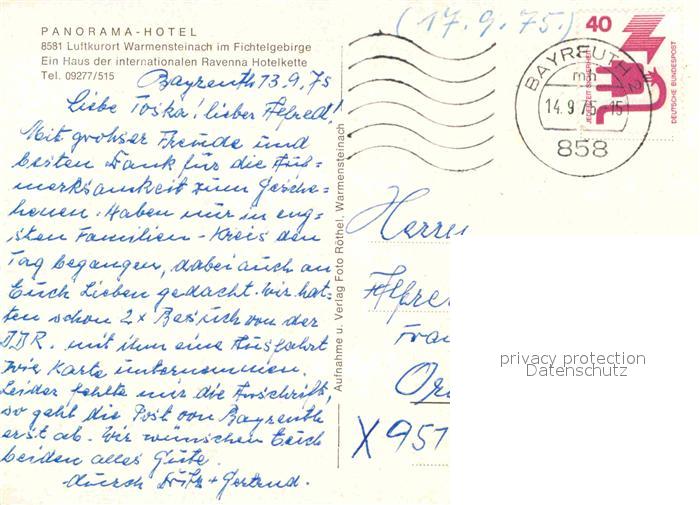 PANORAMA-HOTEL
8581 Luftkurort Warmensteinach im Fichtelgebirge
Ein Haus der internationalen Ravenna Hotelkette
Tel. 09277/515
Bayreuth 13.9.75
Liebe Toska! lieber Alfred!
Mit grohser Freude und
besten Dank für die Auf=
merksamkeit zum Gesche=
henen. Haben nur in eng=
sten Familien-Kreis den
Tag begangen, dabei auch an
Euch Lieben gedacht. Wir hat=
ten schon 2x Besuch von der
DDR. mit ihm eine Ausfahrt
wie Karte unternommen.
Leider fehlte mir die Anschrift,
so geht die Post von Bayreuth
erst ab. Wir wünschen Euch
beiden alles Gute.
durch + Gertrud.
Aufnahme u. Verlag Foto Röthel, Warmensteinach
(17.9.75)
40
JEDERZEIT SICHERHEIT
DEUTSCHE BUNDESPOST
BAYREUTH 2
mh
14.9.75-15
858
Herrn
Alfre
Fra
X 951
privacy protection
Datenschutz